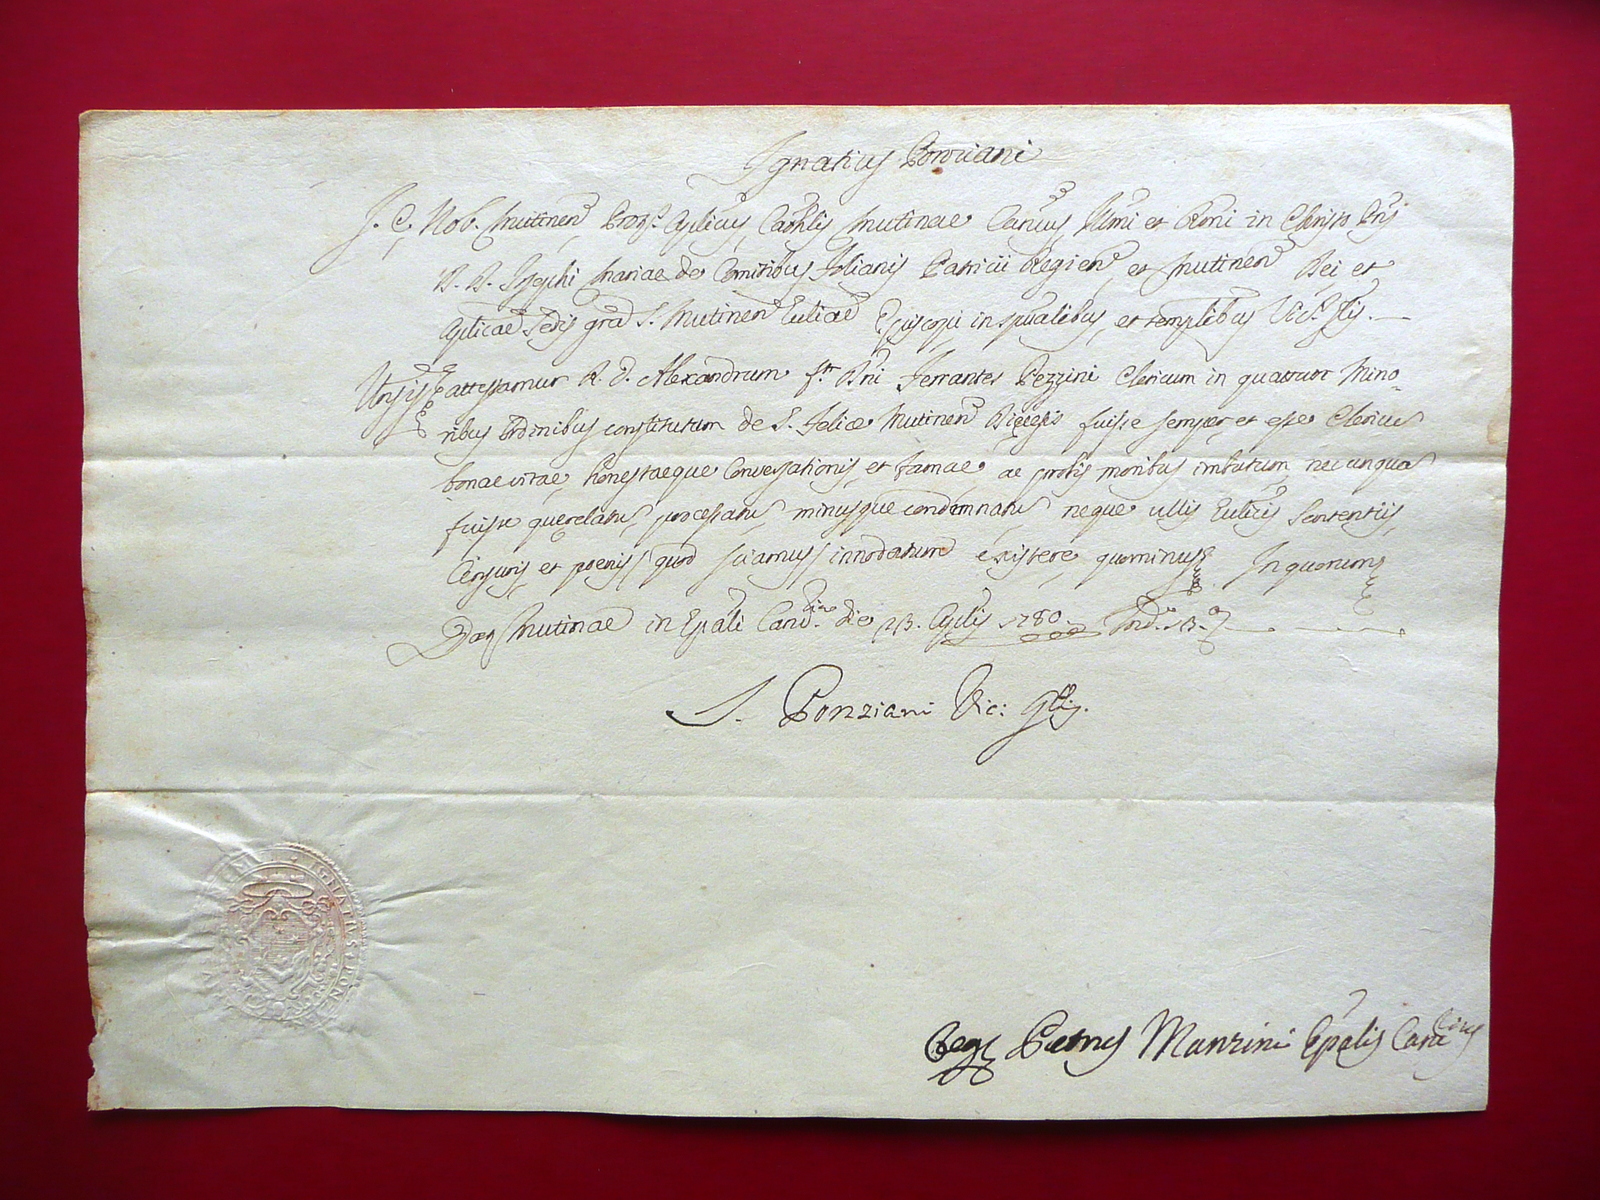 Ignatius Ponziani
J. C. Nob. Mutinen. Prot. Aplicus, Cathlis Mutinae Cancus, Illmi et Rmi in Christo Pris
D. D. Josephi Mariae de Comitibus Folianis Patricii Regien. et Mutinen. Dei et
Aplicae Sedis gra S. Mutinen. Ecliae Episcopi in spualibus, et templibus Vics. Glis.
attestamur R. D. Alexandrum f. Dni Ferrantes Pezzini Clericum in quatuor Mino-
ribus Ordinibus constitutum de S. Felice Mutinen. Diecesis fuisse semper et esse Clericu
bonae vitae, honestaeque Conversationis, et famae, ac probis moribus imbutum, nec unqua
fuisse querelatu, processatu, minusque condemnatu neque ullis Eclicis Sententiis,
Censuris, et poenis, quod sciamus, innodatum existere, quominus In quorum
Dat. Mutinae in Epali Canc. die 23. Aplis 1780. Ind. 13.
J. Ponziani Vic: Glis.
IGNATIUS PON
Petrus Manzini Epalis Canc